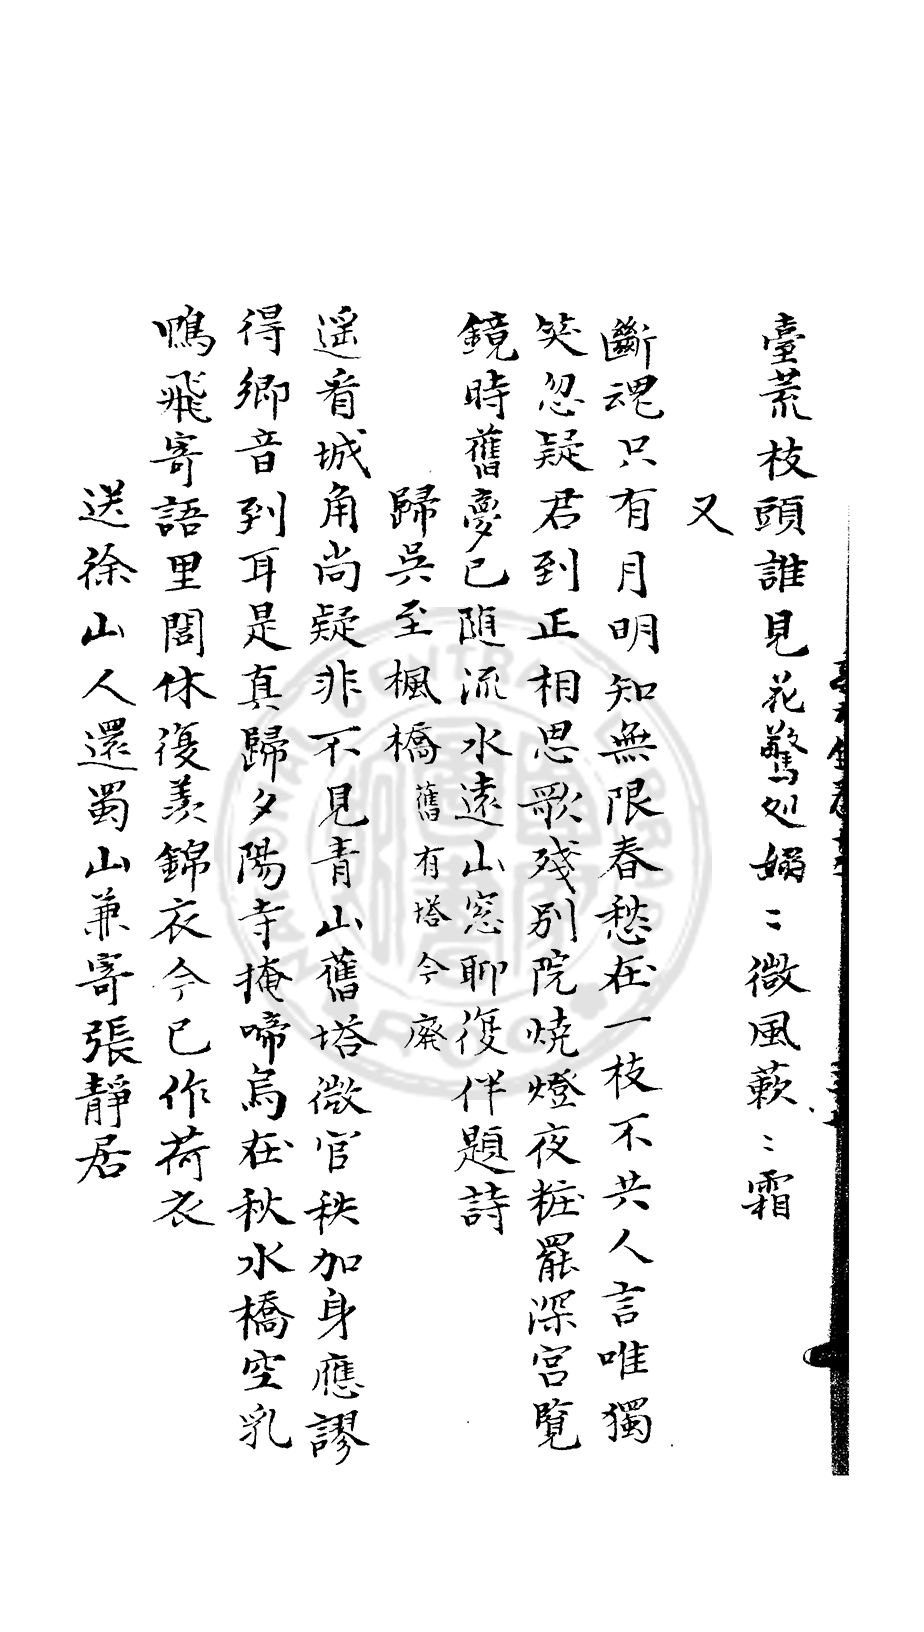 臺荒枝頭誰見花驚処嫋〻微風蔌〻霜
又
斷魂只有月明知無限春愁在一枝不共人言唯獨
笑忽疑君到正相思歌殘別院燒燈夜粧罷深宮覽
鏡時舊夢已随流水遠山窓聊復伴題詩
歸吳至楓橋舊有塔今廢
遥看城角尚疑非不見青山舊塔微官秩加身應謬
得鄉音到耳是真歸夕陽寺掩啼烏在秋水橋空乳
鴨飛寄語里閭休復羨錦衣今已作荷衣
送徐山人還蜀山兼寄張靜居